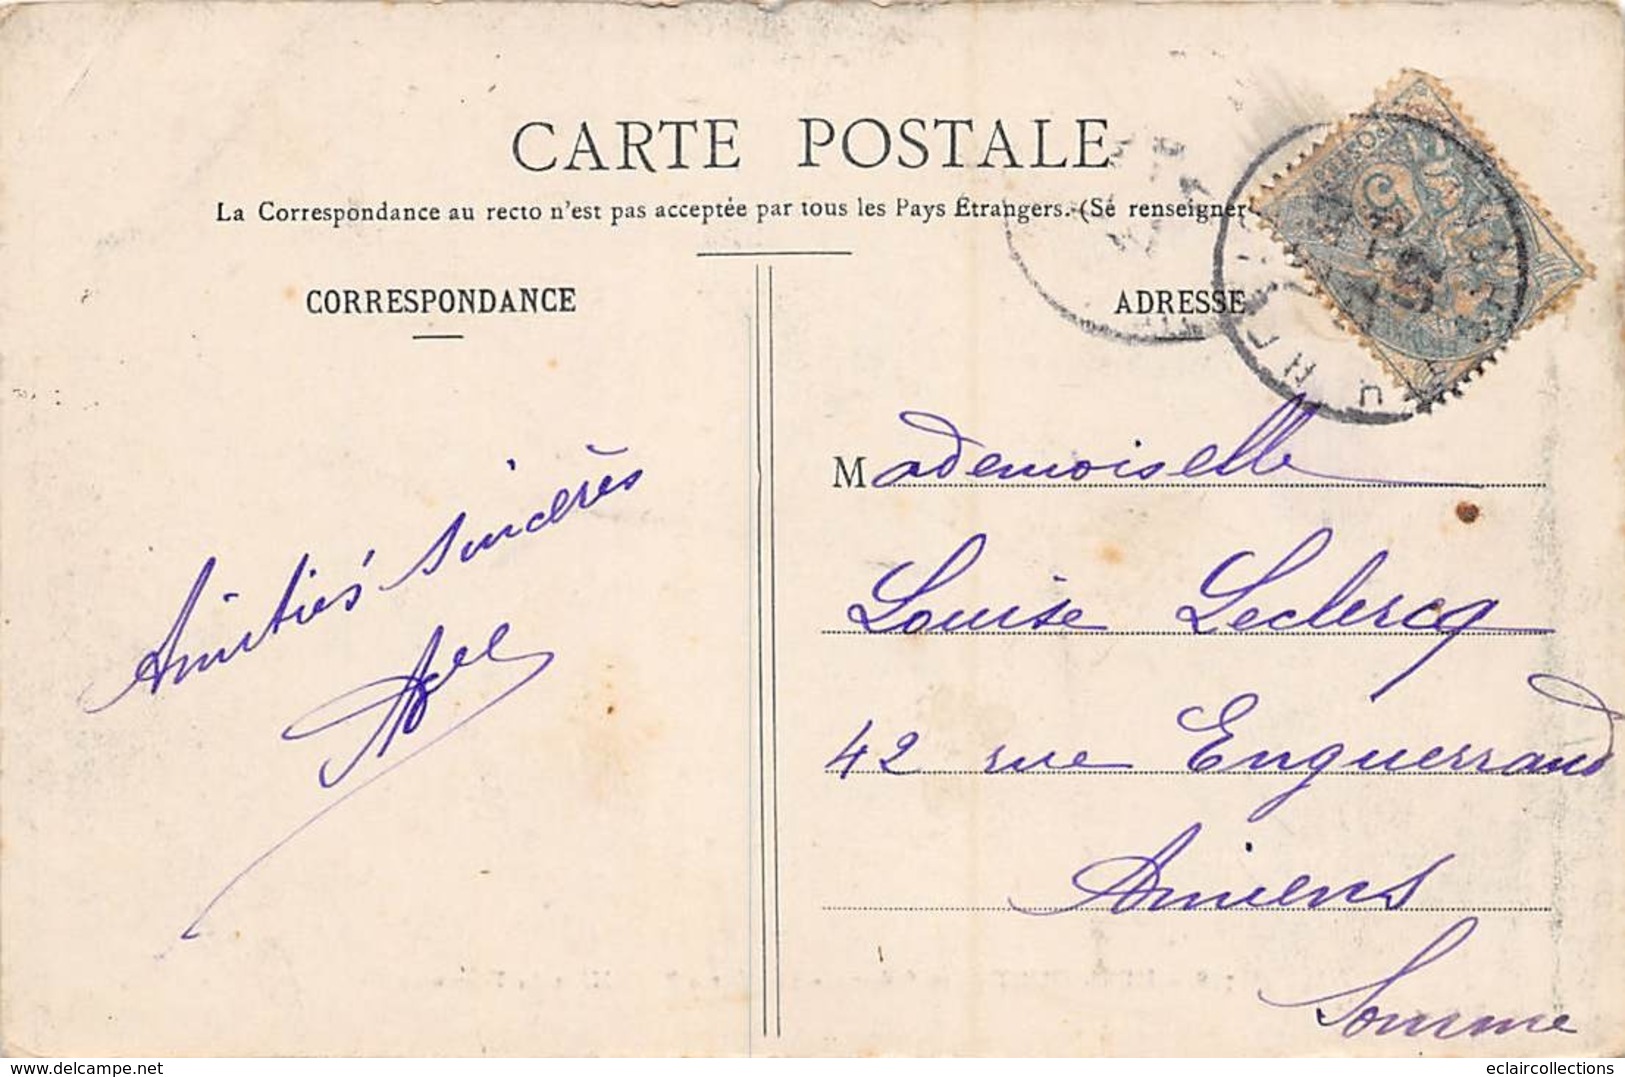 CARTE POSTALE
La Correspondance au recto n'est pas acceptée par tous les Pays Étrangers.-(Sé renseigner
CORRESPONDANCE
Amitiés sincères
ADRESSE
Mademoiselle
Louise Leclercq
42 rue Enguerrand
Amiens
Somme
www.delcampe.net
eclaircollections